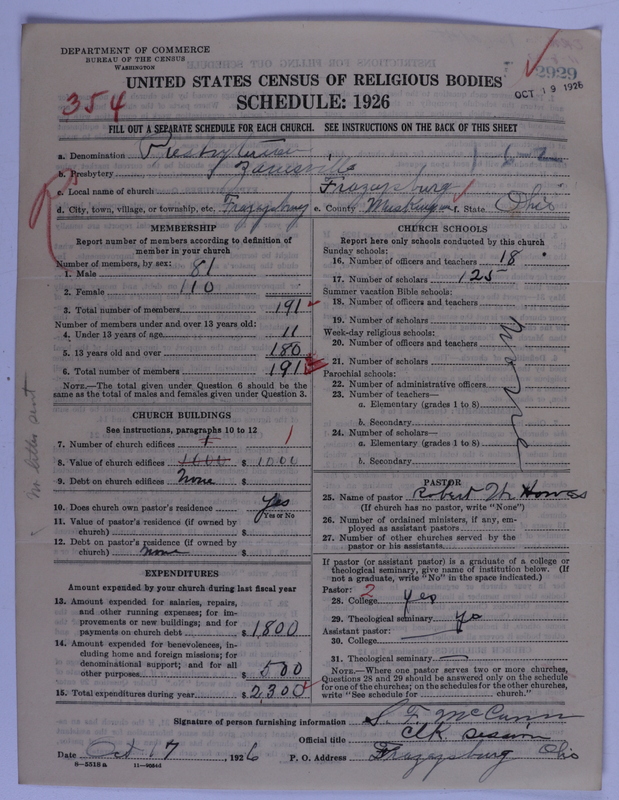 DEPARTMENT OF COMMERCE
BUREAU OF THE CENSUS
WASHINGTON
UNITED STATES CENSUS OF RELIGIOUS BODIES
SCHEDULE: 1926
354
2929
OCT 19 1926
FILL OUT A SEPARATE SCHEDULE FOR EACH CHURCH. SEE INSTRUCTIONS ON THE BACK OF THIS SHEET
a. Denomination Presbyterian 1 6 2
b. Presbytery of Zanesville
c. Local name of church Frazeysburg
d. City, town, village, or township, etc. Frazeysburg e. County Muskingum f. State Ohio
MEMBERSHIP
Report number of members according to definition of
member in your church
Number of members, by sex:
1. Male 81
2. Female 110
3. Total number of members 191
Number of members under and over 13 years old:
4. Under 13 years of age 11
5. 13 years old and over 180
6. Total number of members 191
NOTE.—The total given under Question 6 should be the
same as the total of males and females given under Question 3.
CHURCH BUILDINGS
See instructions, paragraphs 10 to 12
7. Number of church edifices 1 1
8. Value of church edifices 1000 $ 1000
9. Debt on church edifices none $
10. Does church own pastor's residence yes
Yes or No
11. Value of pastor's residence (if owned by
church) $
12. Debt on pastor's residence (if owned by
church) none $
EXPENDITURES
Amount expended by your church during last fiscal year
13. Amount expended for salaries, repairs,
and other running expenses; for im-
provements or new buildings; and for
payments on church debt $ 1800
14. Amount expended for benevolences, in-
cluding home and foreign missions; for
denominational support; and for all
other purposes $ 500
15. Total expenditures during year $ 2,300
CHURCH SCHOOLS
Report here only schools conducted by this church
Sunday schools:
16. Number of officers and teachers 18
17. Number of scholars 125
Summer vacation Bible schools:
18. Number of officers and teachers
19. Number of scholars
Week-day religious schools:
20. Number of officers and teachers
21. Number of scholars
Parochial schools:
22. Number of administrative officers
23. Number of teachers—
a. Elementary (grades 1 to 8)
b. Secondary
24. Number of scholars—
a. Elementary (grades 1 to 8)
b. Secondary
None
PASTOR
25. Name of pastor Robert M. Howes
(If church has no pastor, write "None")
26. Number of ordained ministers, if any, em-
ployed as assistant pastors
27. Number of other churches served by the
pastor or his assistants
If pastor (or assistant pastor) is a graduate of a college or
theological seminary, give name of institution below. (If
not a graduate, write "No" in the space indicated.)
Pastor: 2
28. College yes
29. Theological seminary yes
Assistant pastor:
30. College
31. Theological seminary
NOTE.—Where one pastor serves two or more churches,
Questions 28 and 29 should be answered only on the schedule
for one of the churches; on the schedules for the other churches,
write "See schedule for church."
Signature of person furnishing information S. F. McCann
Official title Clk session
Date Oct 17, 1926 P. O. Address Frazeysburg Ohio
8-5518a 11-9234d